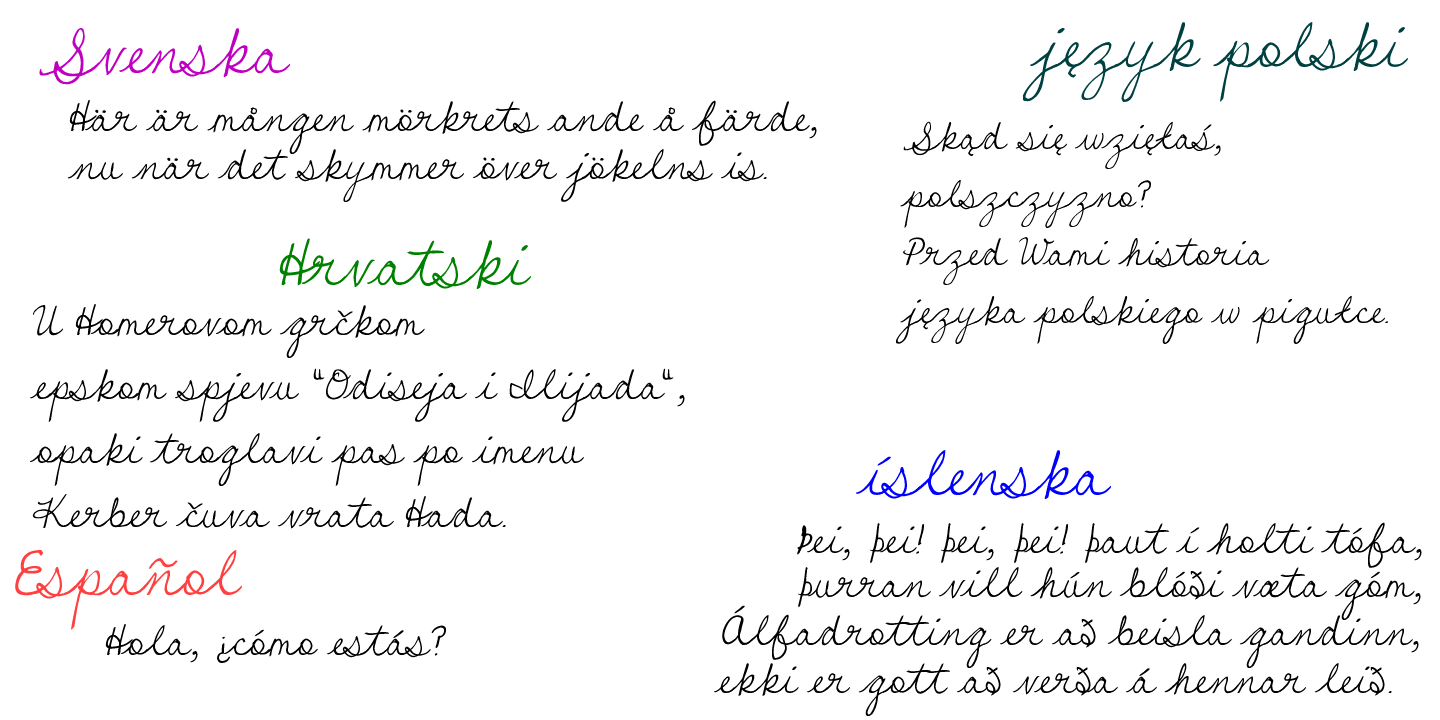 Svenska
Här är mången mörkrets ande å färde,
nu när det skymmer över jökelns is.
język polski
Skąd się wzięłaś,
polszczyzno?
Przed Wami historia
języka polskiego w pigułce.
Hrvatski
U Homerovom grčkom
epskom spjevu "Odiseja i Ilijada",
opaki troglavi pas po imenu
Kerber čuva vrata Hada.
Español
Hola, ¿cómo estás?
íslenska
Þei, þei! þei, þei! þaut í holti tófa,
þurran vill hún blóði væta góm,
Álfadrotting er að beisla gandinn,
ekki er gott að verða á hennar leið.